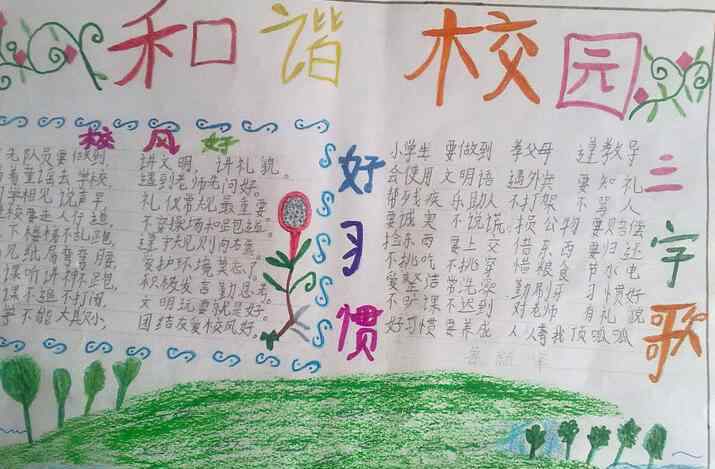 和谐校园
校风好
队员要做到,
讲文明,讲礼貌。
去学校,
遇到老师先问好。
同学相见说声早,
礼仪常规最重要
校要走人行道
不穿操场和跑道。
下楼梯不乱跑,
见纸屑
爱护环境莫忘了
课听讲
积极发言勤思考
课不追不打闹,
文明玩耍就是好。
不能大喊小,
团结友爱校风好。
好习惯
三字歌
小学生 要做到 孝父母 遵教导
会使用 文明语 遇外宾 要知礼
帮残疾 乐助人 不打架 不骂人
要诚实 不说谎 损公物 要赔偿
捡东西 要上交 借东西 要归还
不挑吃 不挑穿 惜粮食 节水电
爱整洁 常洗澡 勤刷牙 习惯好
不旷课 不迟到 对老师 有礼貌
好习惯 要养成 人人夸我顶呱呱